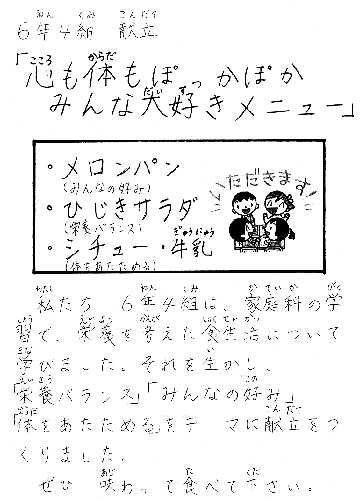 6年4組 献立
「心も体もぽっかぽか
みんな大好きメニュー」
・メロンパン
(みんなの好み)
・ひじきサラダ
(栄養バランス)
・シチュー・牛乳
(体をあたためる)
いただきます
私たち 6年4組は、家庭科の学
習で、栄養を考えた食生活について
学びました。それを生かし、
「栄養バランス」「みんなの好み」
「体をあたためる」をテーマに献立をつ
くりました。
ぜひ 味わって食べて下さい。